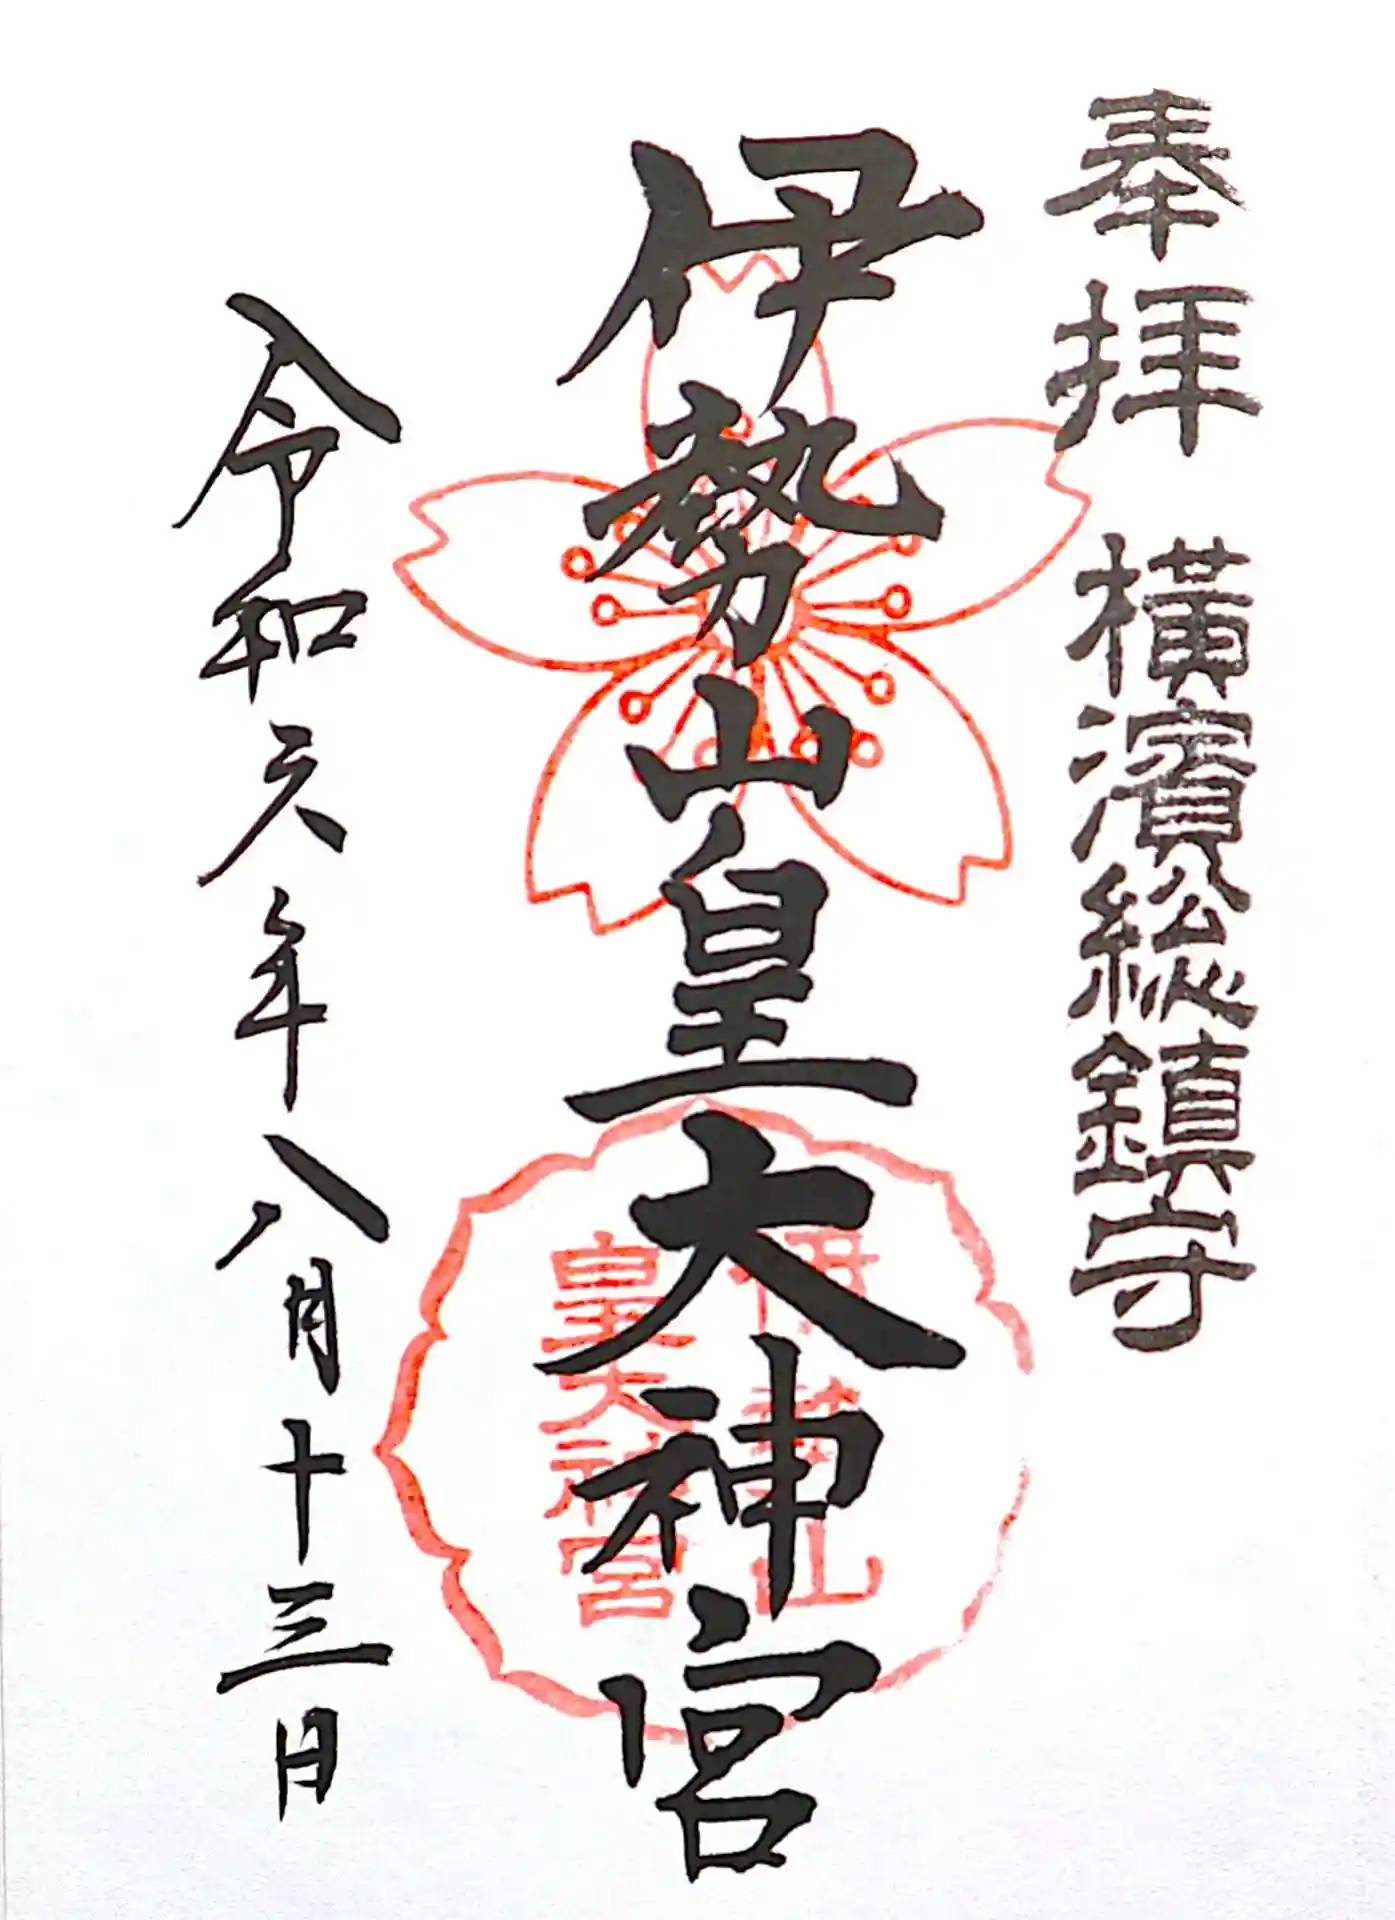 奉拝 横濱総鎮守
伊勢山皇大神宮
伊勢山
皇大神宮
令和六年八月十三日